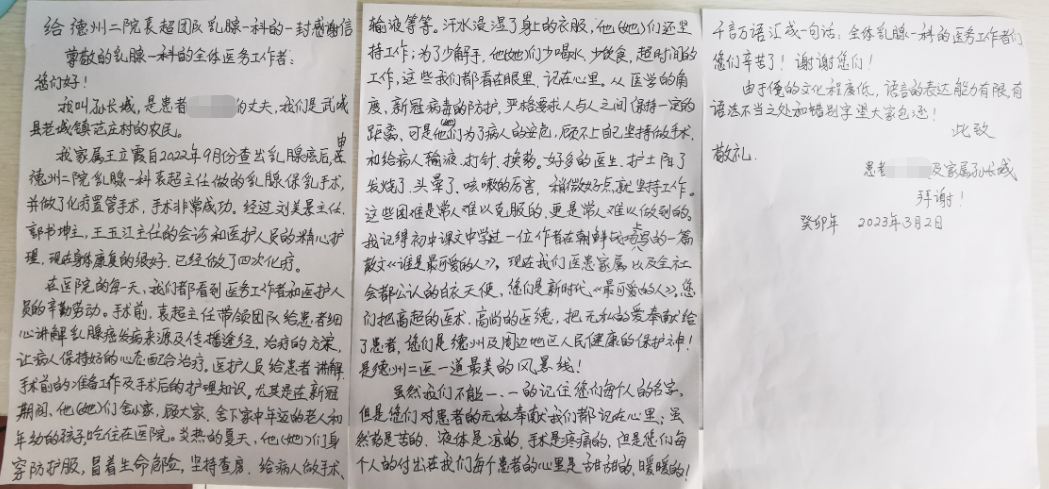 给德州二院袁超团队乳腺一科的一封感谢信
尊敬的乳腺一科的全体医务工作者:
您们好!
我叫孙长城,是患者 的丈夫,我们是武城
县老城镇范庄村的农民。
我家属王立霞自2022年9月份查出乳腺癌后,由
德州二院乳腺一科袁超主任做的乳腺保乳手术,
并做了化疗置管手术,手术非常成功。经过刘美景主任、
郭书坤主、王玉江主任的会诊和医护人员的精心护
理,现在身体康复的很好,已经做了四次化疗。
在医院的每一天,我们都看到医务工作者和医护人
员的辛勤劳动。手术前,袁超主任带领团队给患者细
心讲解乳腺癌发病来源及传播途经,治疗的方案,
让病人保持好的心态配合治疗。医护人员给患者讲解
手术前的准备工作及手术后的护理知识。尤其是在新冠
期间,他(她)们舍小家,顾大家,舍下家中年迈的老人和
年幼的孩子吃住在医院。炎热的夏天,他(她)们身
穿防护服,冒着生命危险,坚持查房、给病人做手术、
输液等等。汗水浸湿了身上的衣服,他(她)们还坚
持工作;为了少解手,他(她)们少喝水,少饮食,超时间的
工作,这些我们都看在眼里,记在心里。从医学的角
度,新冠病毒的防护,严格要求人与人之间保持一定的
距离,可是他(她)们为了病人的安危,顾不上自己坚持做手术,
和给病人输液、打针、换药。好多的医生、护士阳了
发烧了、头晕了、咳嗽的厉害,稍微好点就坚持工作。
这些困难是常人难以克服的,更是常人难以做到的。
我记得初中课文中学过一位作者在朝鲜战场上写的一篇
散文《谁是最可爱的人》,现在我们医患家属以及全社
会都公认的白衣天使,您们是新时代《最可爱的人》,您
们把高超的医术,高尚的医德,把无私的爱奉献给
了患者,您们是德州及周边地区人民健康的保护神!
是德州二医一道最美的风景线!
虽然我们不能一、一的记住您们每个人的名字,
但是您们对患者的无私奉献我们都记在心里;虽
然药是苦的、液体是凉的、手术是疼痛的,但是您们每
个人的付出在我们每个患者的心里是甜甜的、暖暖的!
千言万语汇成一句话:全体乳腺一科的医务工作者们
您们辛苦了!谢谢您们!
由于俺的文化程度低,语言的表达能力有限,有
语法不当之处和错别字望大家包涵!
此致
敬礼.
患者 及家属孙长城
拜谢!
癸卯年 2023年3月2日